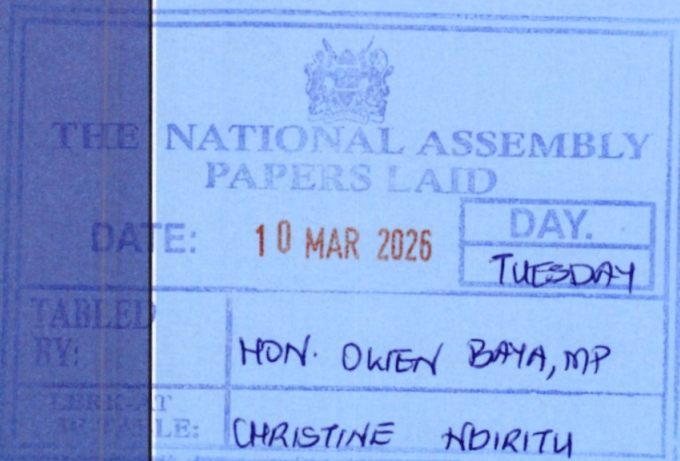 THE NATIONAL ASSEMBLY
PAPERS LAID
DATE: 10 MAR 2026 DAY.
TUESDAY
TABLED
BY: HON. OWEN BAYA, MP
CLERK-AT
LE: CHRISTINE NDIRITU